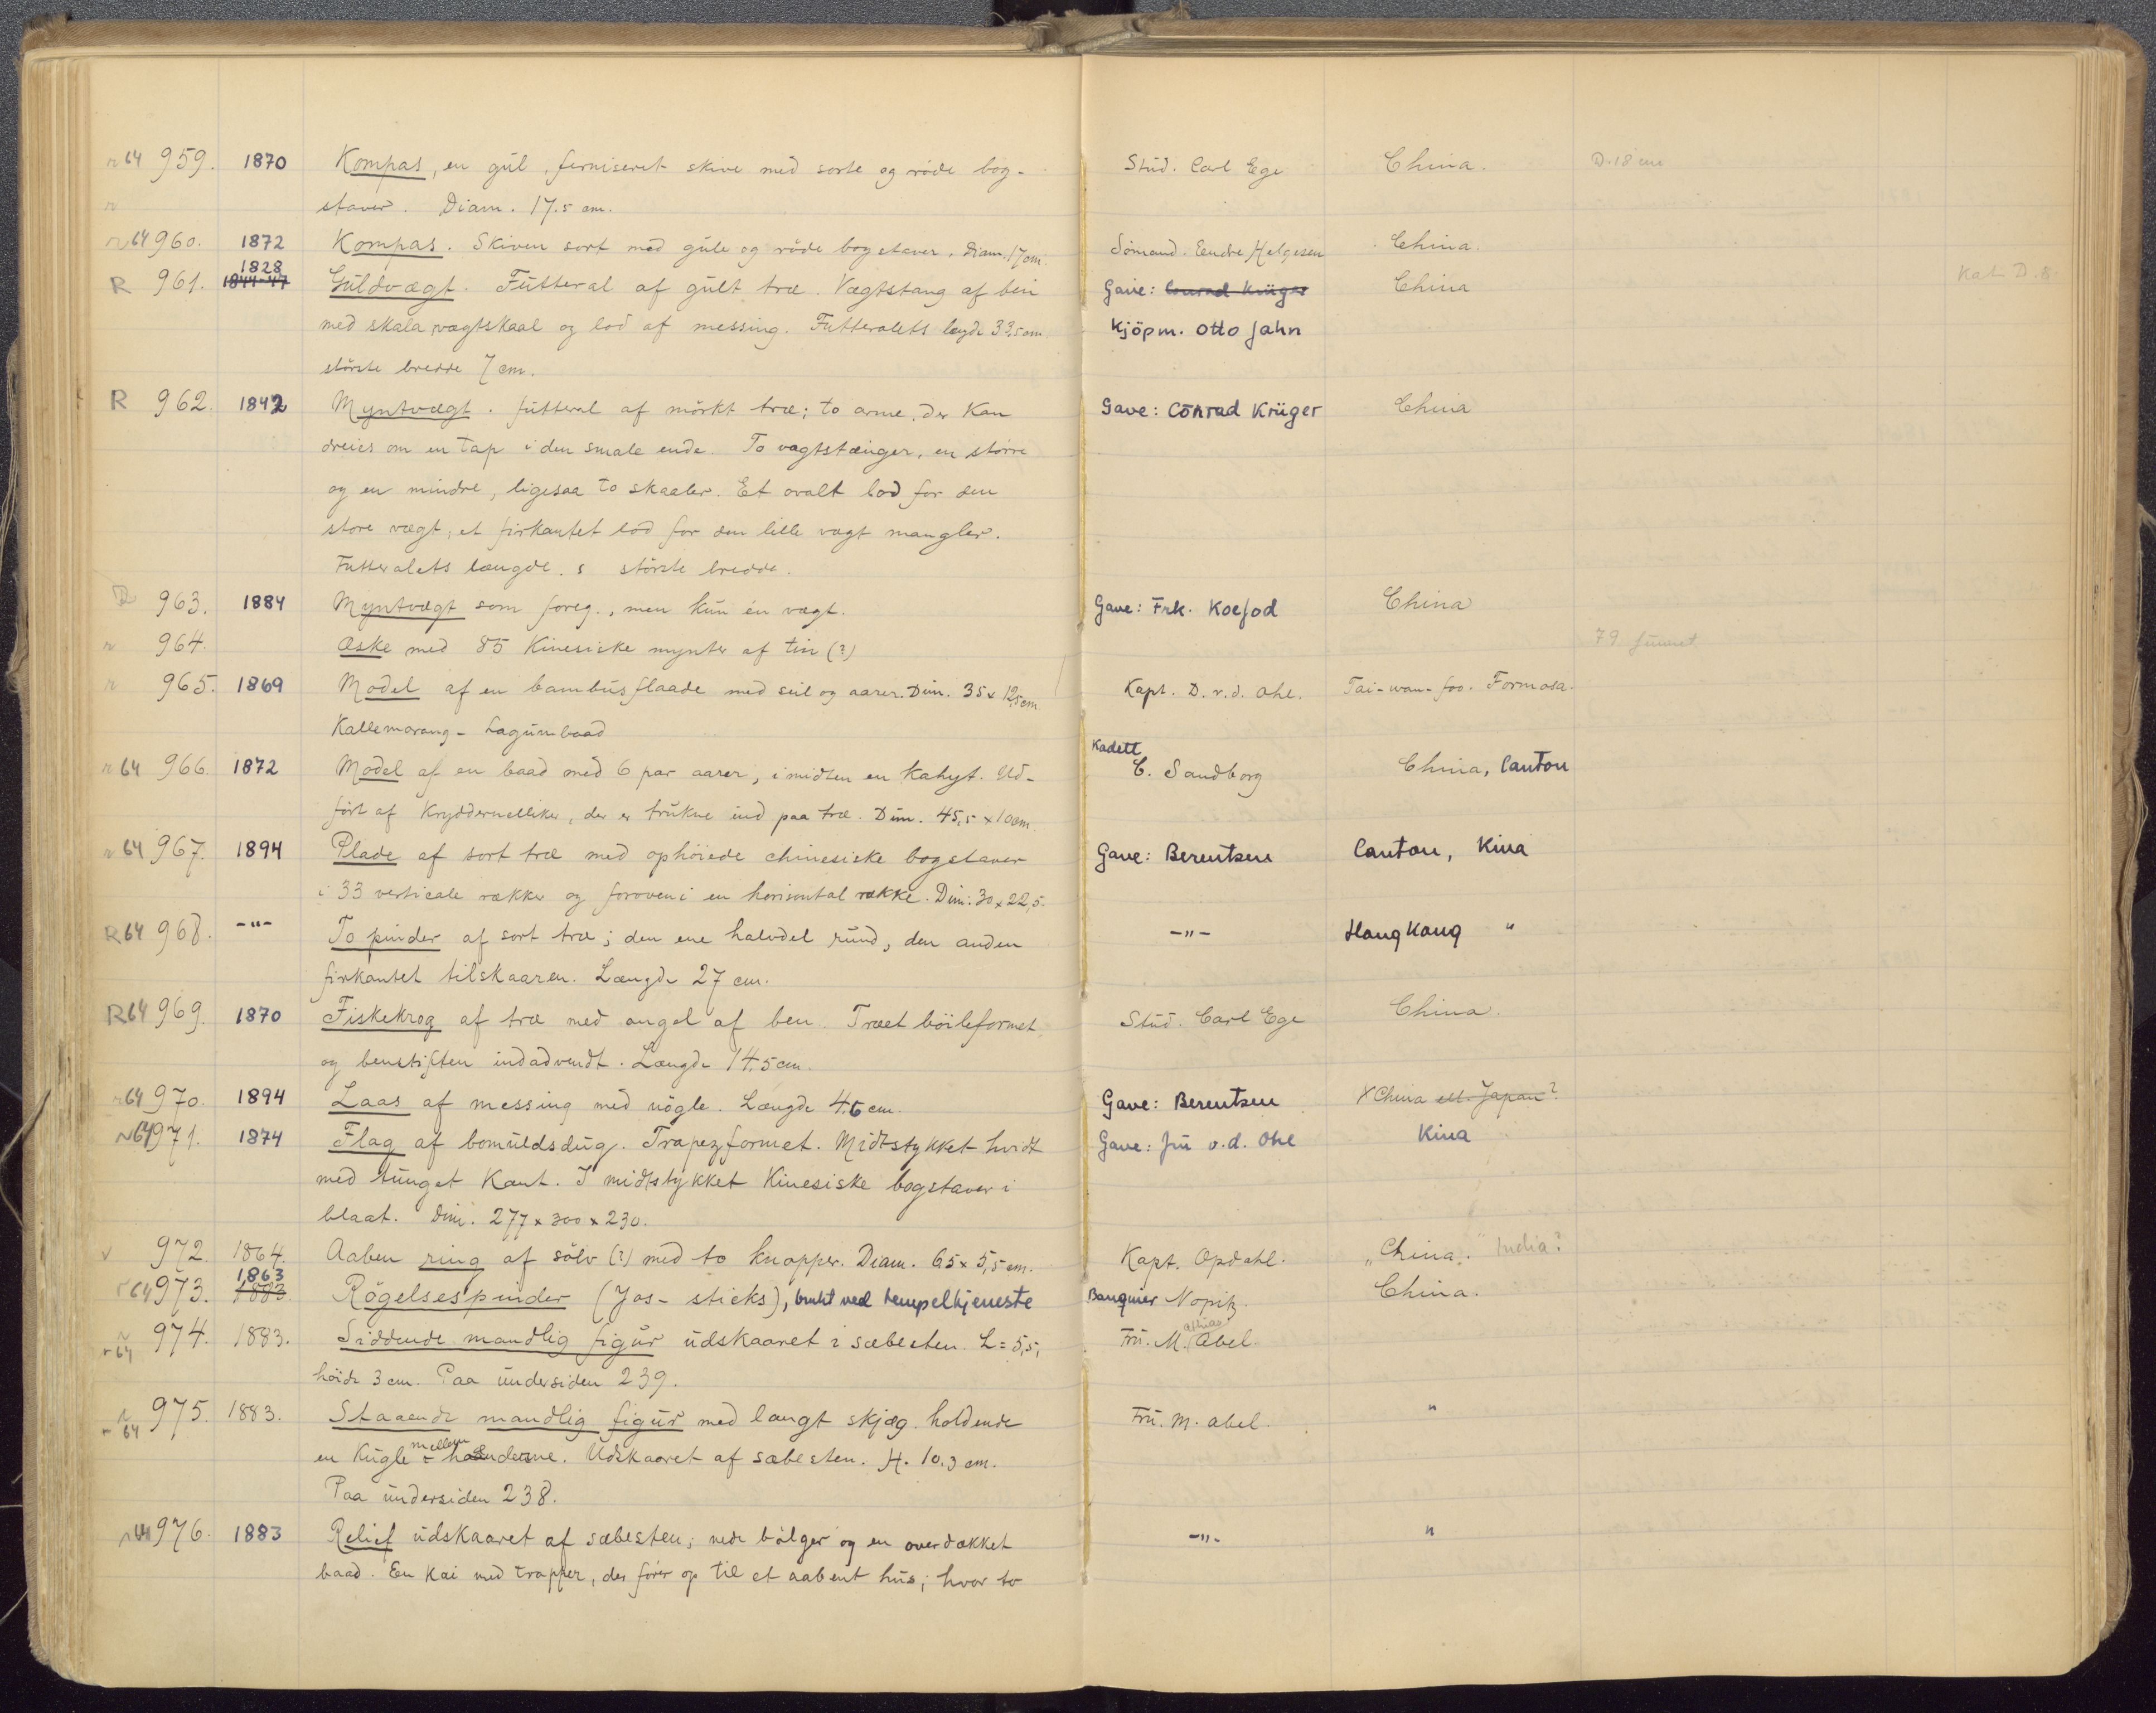 n 64 959. 1870 Kompas, en gul, ferniseret skive med sorte og röde bog- Stud. Carl Ege China. D. 18 cm
n staver. Diam. 17.5 cm.
n 64 960. 1872 Kompas. Skiven sort med gule og röde bogstaver. Diam. 17 cm. Sömand. Endre Helgesen China.
1828
R 961. 1844-47 Guldvægt. Futteral af gult træ. Vægtstang af ben Gave: Conrad Krüger China Kat. D.
med skala, vægtskaal og lod af messing. Futteralets lægde 33,5 cm. Kjöpm. Otto Jahn
störste bredde 7 cm.
R 962. 1842 Myntvægt. futteral af mörkt træ; to arme, der kan Gave: Conrad Krüger China
dreies om en tap i den smale ende. To vægtstænger, en större
og en mindre, ligesaa to skaaler. Et ovalt lod for den
store vægt, et firkantet lod for den lille vægt mangler.
Futteralets længde. s störste bredde.
963. 1884 Myntvægt som foreg., men kun én vægt. Gave: Frk. Koefod China
n 964. Æske med 85 Kinesiske mynter af tin (?) 79 funnet
n 965. 1869 Model af en bambusflaade med seil og aarer. Dim. 35 x 12,5 cm Kapt. D. v. d. Ohe. Tai-wan-foo. Formosa.
Kallemarang - Lagunbaad
Kadett
n 64 966. 1872 Model af en baad med 6 par aarer, i midten en kahyt. Ud- C. Sandborg China, Canton
fört af Kryddernelliker, der er trukne ind paa træ. Dim. 45,5 x 10 cm.
n 64 967. 1894 Plade af sort træ med ophöiede chinesiske bogstaver Gave: Berentzen Canton, Kina
i 33 verticale rækker og foroven i en horisontal række. Dim: 30 x 22,5.
R 64 968. -"- To pinder af sort træ; den ene halvdel rund, den anden -"- Hong Kong "
firkantet tilskaaren. Længde 27 cm.
R 64 969. 1870 Fiskekrog af træ med angel af ben. Træet böileformet Stud. Carl Ege China.
og benstiften indadvendt. Længde 14.5 cm.
n 64 970. 1894 Laas af messing med nögle. Længde 4.6 cm. Gave: Berentzen X China ell. Japan?
n 64 971. 1874 Flag af bomuldsdug. Trapezformet. Midtstykket hvidt Gave: Fru v.d. Ohe Kina
med tunget Kant. I midtstykket Kinesiske bogstaver i
blaat. Dim. 277 x 300 x 230.
v 972. 1864. Aaben ring af sölv (?) med to knopper. Diam. 6.5 x 5,5 cm. Kapt. Opdahl. "China." India?
1863
r 64 973. 1883 Rögelsespinder (Jos-sticks), brukt ved tempeltjeneste Banquier Nopitz. China.
n 64 974. 1883. Siddende mandlig figur udskaaret i sæbesten. L = 5,5, Fru. M. Abel.
höide 3 cm. Paa undersiden 239.
n 64 975. 1883. Staaende mandlig figur med langt skjæg holdende Fru. M. Abel. "
en Kugle mellem hænderne. Udskaaret af sæbesten. H. 10.3 cm.
Paa undersiden 238.
n 64 976. 1883 Relief udskaaret af sæbesten; nede bölger og en overdækket -"- "
baad. En Kai med trapper, der förer op til et aabent hus; hvor to